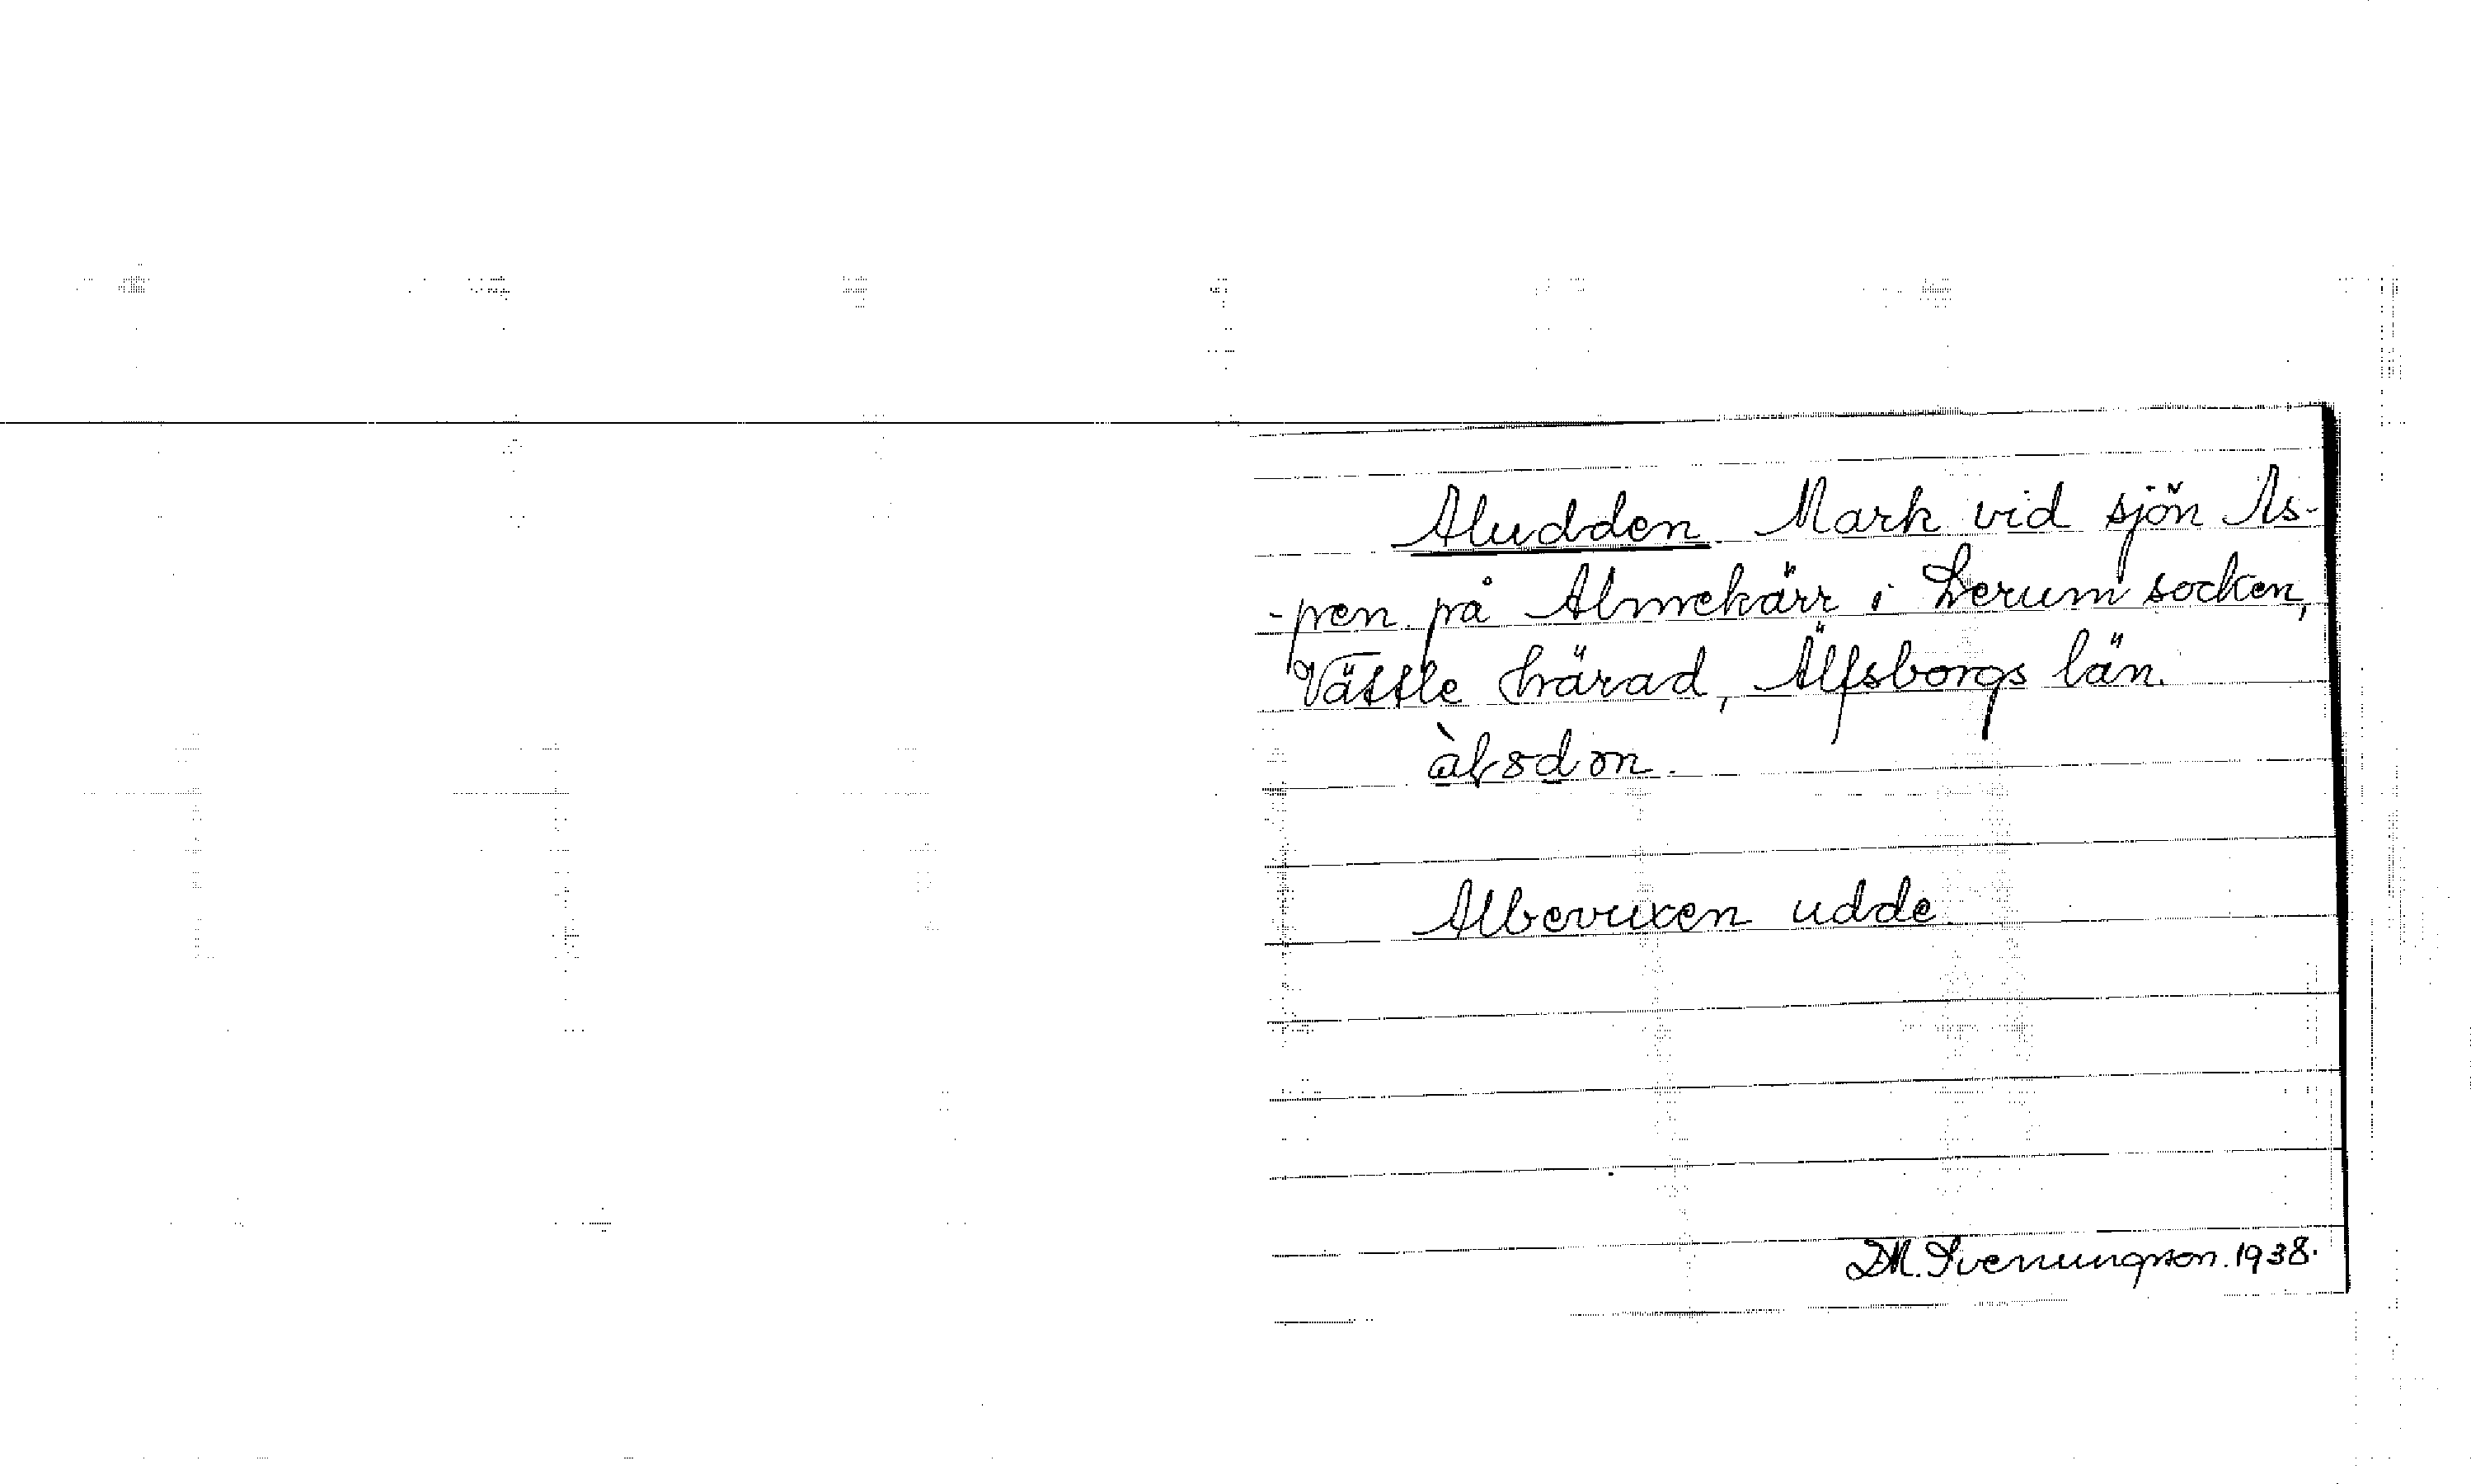 Aludden Mark vid sjön As-
-pen på Almekärr i Lerum socken,
Vättle härad, Älfsborgs län.
Albevuxen udde
D.M. Svenungsson. 1938.